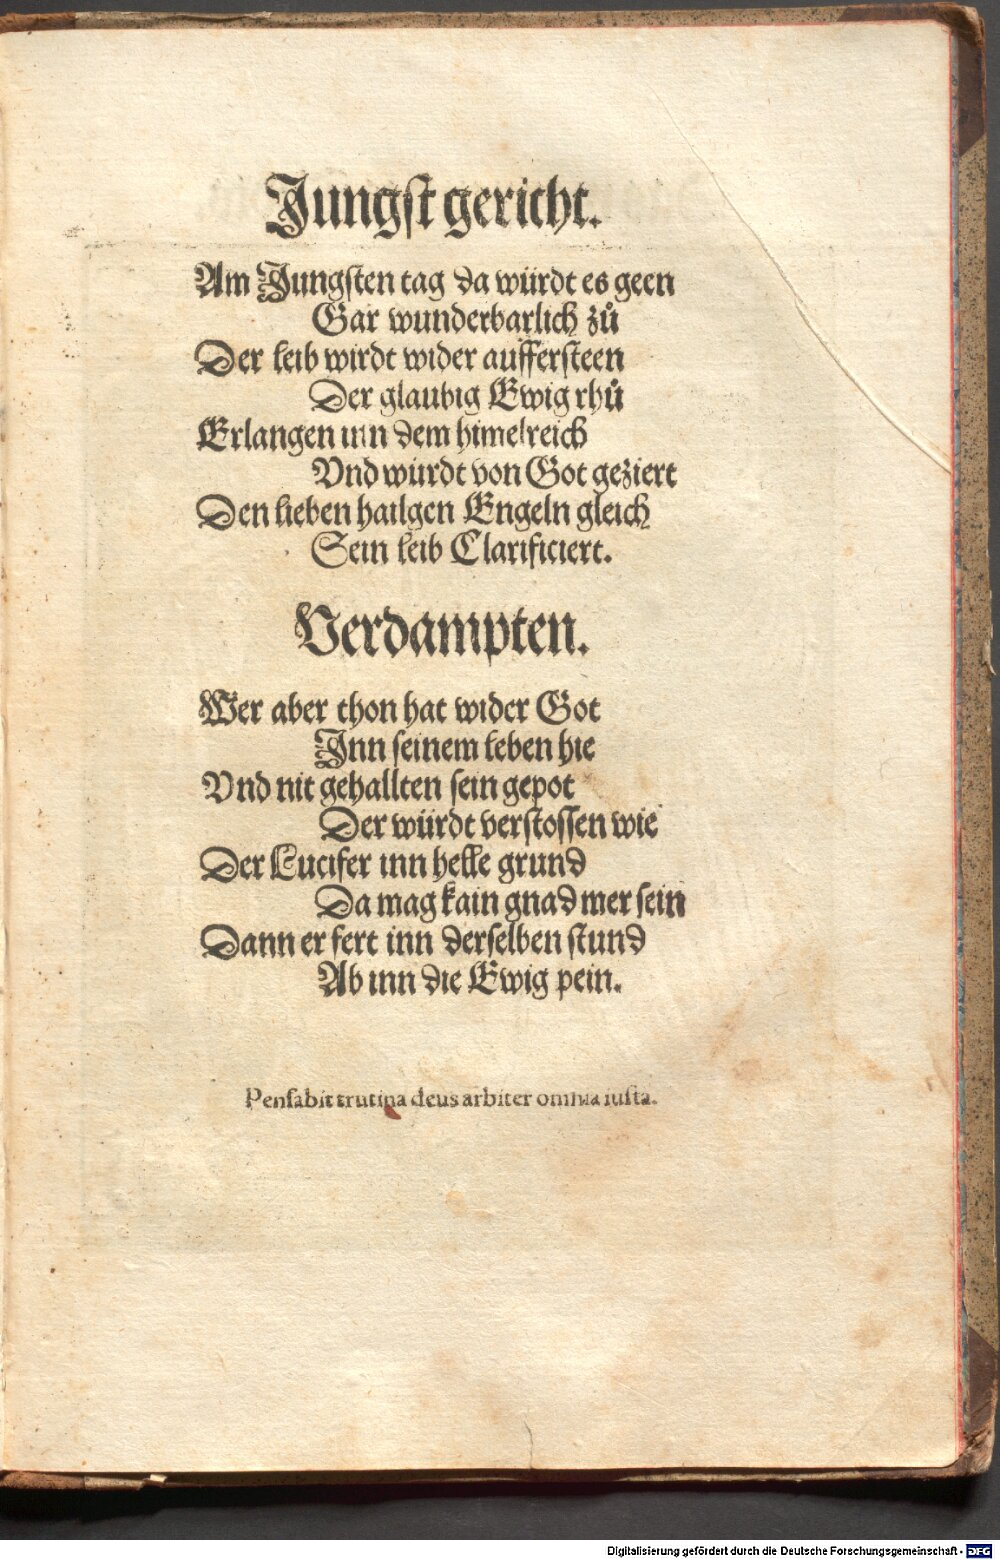 Jungst gericht.
Am Jungsten tag da würdt es geen
Gar wunderbarlich zů
Der leib wirdt wider aufferſteen
Der glaubig Ewig rhů
Erlangen inn dem himelreich
Vnd würdt von Got geziert
Den lieben hailgen Engeln gleich
Sein leib Clarificiert.
Verdampten.
Wer aber thon hat wider Got
Inn ſeinem leben hie
Vnd nit gehallten ſein gepot
Der würdt verſtoſſen wie
Der Lucifer inn helle grund
Da mag kain gnad mer ſein
Dann er fert inn derſelben ſtund
Ab inn die Ewig pein.
Penſabit trutina deus arbiter omnia iuſta.
Digitalisierung gefördert durch die Deutsche Forschungsgemeinschaft - DFG